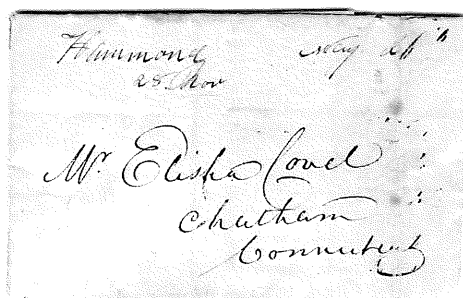 Hammond
28 Nov
Mr Elisha Covel
Chatham
Connecticut